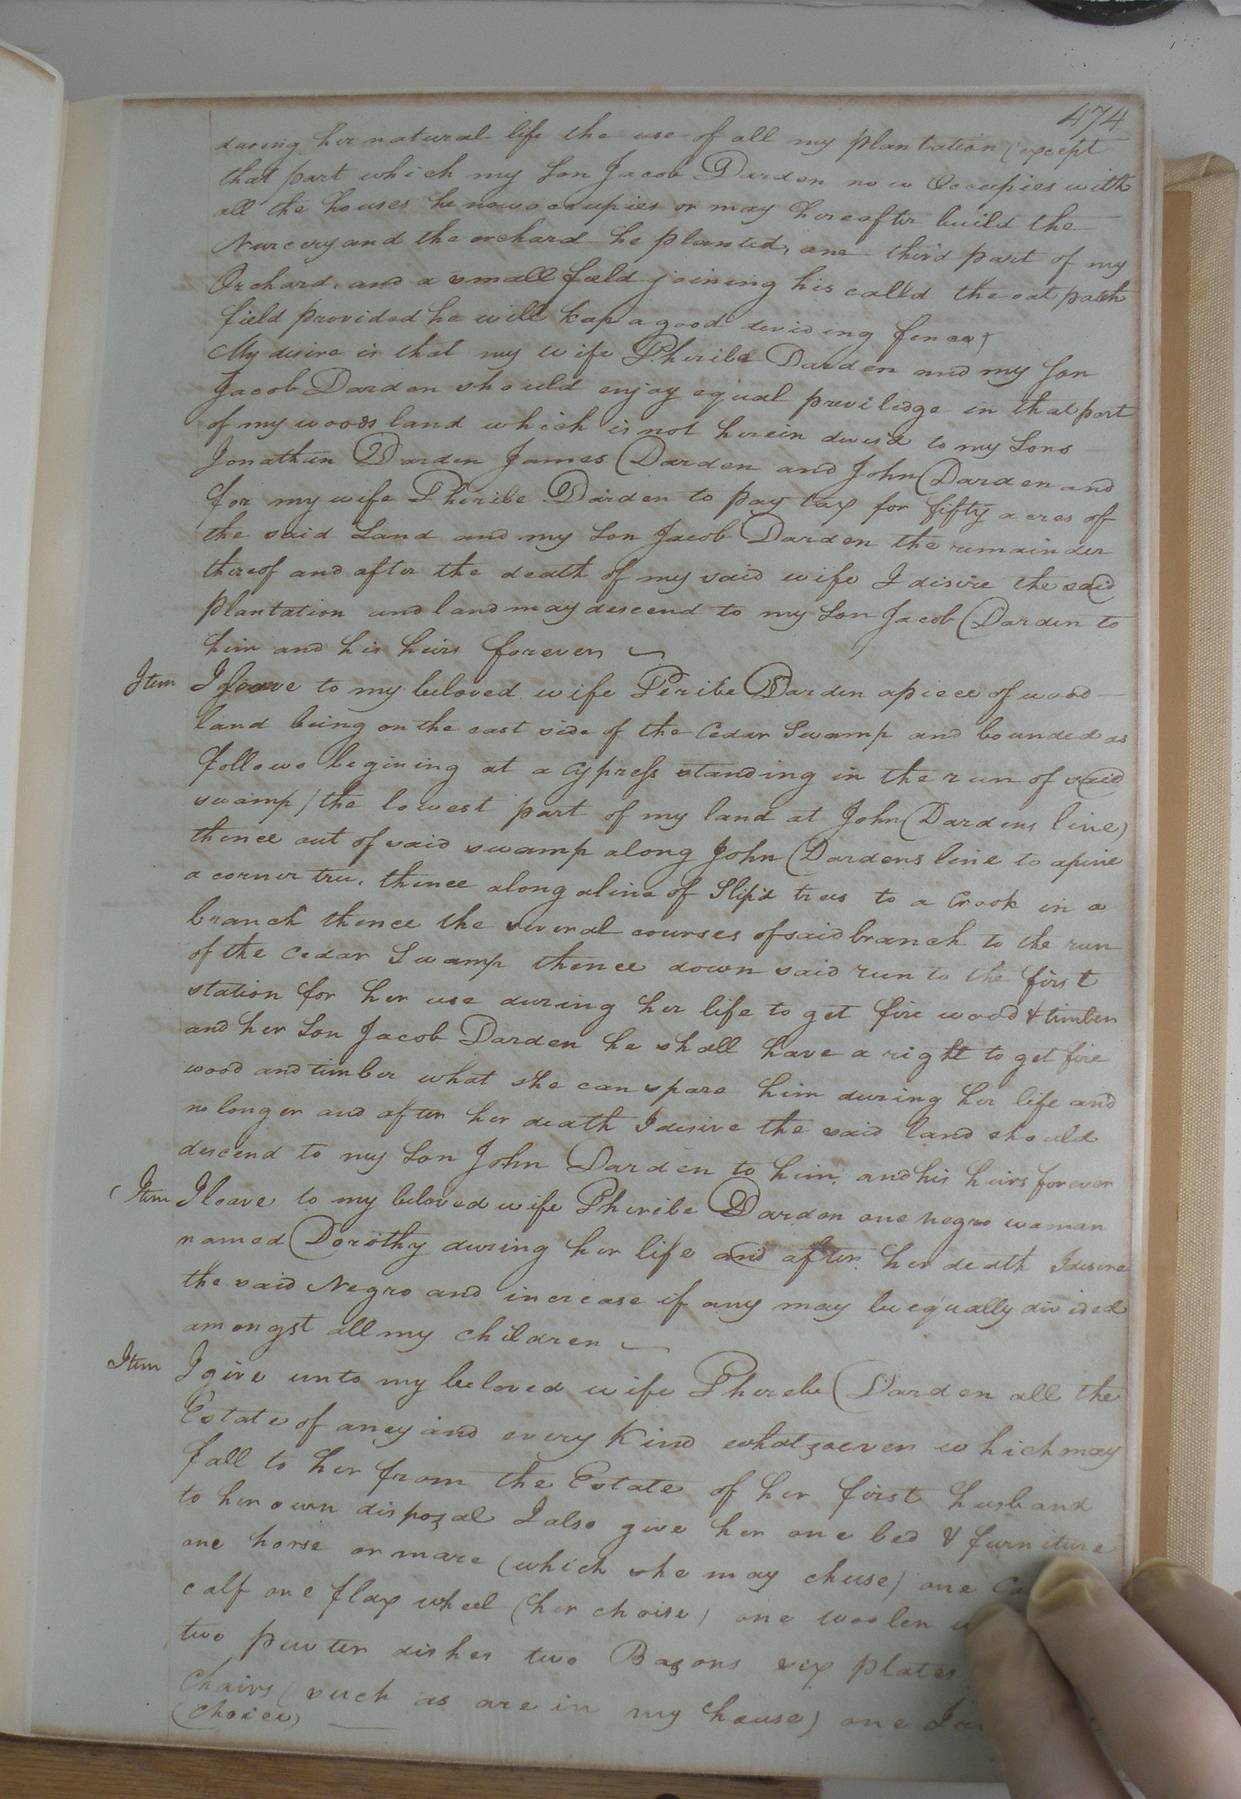 474
during her natural life the use of all my plantation (except
that part which my Son Jacob Darden now Occupies with
all the houses he now occupies or may hereafter build the
Nurcery and the orchard he planted, one third part of my
Orchard, and a small field joining his calld the oat patch
field provided he will keep a good deviding fence)
My desire is that my wife Pheribe Darden and my Son
Jacob Darden should enjoy equal previledge in that part
of my woods land which is not herein devisd to my Sons
Jonathan Darden James Darden and John Darden and
for my wife Pheribe Darden to pay tax for fifty acres of
the said Land and my Son Jacob Darden the remainder
thereof and after the death of my said wife I disire the said
plantation and land may descend to my Son Jacob Darden to
him and his heirs forever
Item I leave to my beloved wife Peribe Darden a piece of wood
land being on the east side of the Cedar Swamp and bounded as
follows begining at a Cypress standing in the run of said
swamp (the lowest part of my land at John Dardens line)
thence out of said swamp along John Dardens line to a pine
a corner tree, thence along a line of Slip'd trees to a Crook in a
branch thence the several courses of said branch to the run
of the Cedar Swamp thence down said run to the first
station for her use during her life to get fire wood & timber
and her Son Jacob Darden he shall have a right to get fire
wood and timber what she can spare him during her life and
no longer and after her death I desire the said land should
descend to my Son John Darden to him and his heirs forever
Item I leave to my beloved wife Pheribe Darden one negro woman
named Dorothy during her life and after her death I desire
the said Negro and increase if any may be equally divided
amongst all my children
Item I give unto my beloved wife Pherebe Darden all the
Estate of aney and every Kind whatsoever which may
fall to her from the Estate of her first husband
to her own disposal I also give her one bed & furniture
one horse or mare (which she may chuse) one
calf one flax wheel (her choise) one woolen
two pewter dishes two Basons six plates
Chairs (such as are in my house) one
(Choice)